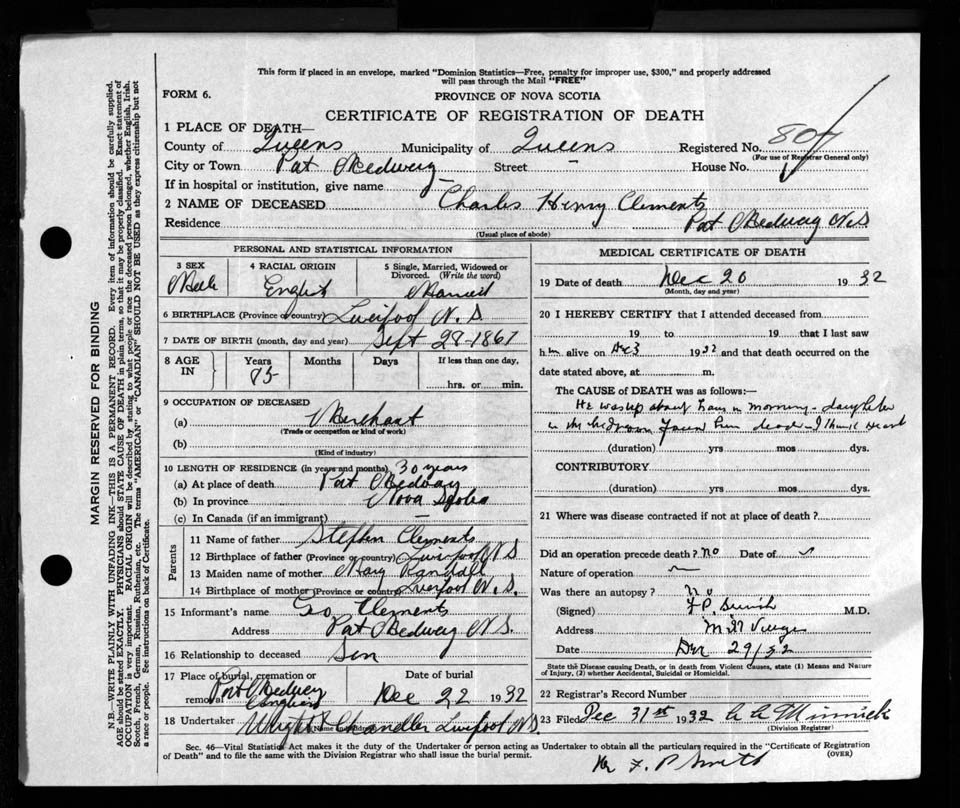 This form if placed in an envelope, marked "Dominion Statistics—Free, penalty for improper use, $300," and properly addressed
will pass through the Mail "FREE"
FORM 6.
PROVINCE OF NOVA SCOTIA
CERTIFICATE OF REGISTRATION OF DEATH
1 PLACE OF DEATH—
County of Queens Municipality of Queens Registered No. 804
(For use of Registrar General only)
City or Town Port Medway Street – House No.
If in hospital or institution, give name
2 NAME OF DECEASED Charles Henry Clements
Residence Port Medway N.S
(Usual place of abode)
PERSONAL AND STATISTICAL INFORMATION
3 SEX 4 RACIAL ORIGIN 5 Single, Married, Widowed or
Divorced. (Write the word)
Male English Married
6 BIRTHPLACE (Province or country) Liverpool N.S
7 DATE OF BIRTH (month, day and year) Sept 28-1867
8 AGE IN Years Months Days If less than one day,
hrs. or min.
9 OCCUPATION OF DECEASED
(a) Merchant
(Trade or occupation or kind of work)
(b)
(Kind of industry)
10 LENGTH OF RESIDENCE (in years and months) 30 years
(a) At place of death Port Medway
(b) In province Nova Scotia
(c) In Canada (if an immigrant) –
Parents
11 Name of father Stephen Clements
12 Birthplace of father (Province or country) Liverpool N S
13 Maiden name of mother Mary Randall
14 Birthplace of mother (Province or country) Liverpool N.S.
15 Informant's name Geo Clements
Address Port Medway N.S.
16 Relationship to deceased Son
17 Place of burial, cremation or removal Date of burial
Port Medway
Dec 22 1932
18 Undertaker Wright & Chandler Liverpool N.S.
MEDICAL CERTIFICATE OF DEATH
19 Date of death Dec 20 1932
(Month, day and year)
20 I HEREBY CERTIFY that I attended deceased from
19 to 19 that I last saw
him alive on Dec 3 1932 and that death occurred on the
date stated above, at m.
The CAUSE of DEATH was as follows:—
He was up about in morning - daughter
in the bedroom found him dead - I think Heart
(duration) yrs mos dys.
CONTRIBUTORY
(duration) yrs mos dys.
21 Where was disease contracted if not at place of death?
Did an operation precede death? no Date of
Nature of operation
Was there an autopsy? no
(Signed) F P Smith M.D.
Address Mill Village
Date Dec 29/32
State the Disease causing Death, or in death from Violent Causes, state (1) Means and Nature
of Injury, (2) whether Accidental, Suicidal or Homicidal.
22 Registrar's Record Number
23 Filed Dec 31st 1932 Minnick
(Division Registrar)
Sec. 46—Vital Statistics Act makes it the duty of the Undertaker or person acting as Undertaker to obtain all the particulars required in the "Certificate of Registration
of Death" and to file the same with the Division Registrar who shall issue the burial permit.
(OVER)
F. P Smith
MARGIN RESERVED FOR BINDING
N.B.—WRITE PLAINLY WITH UNFADING INK—THIS IS A PERMANENT RECORD. Every item of information should be carefully supplied.
AGE should be stated EXACTLY. PHYSICIANS should STATE CAUSE OF DEATH in plain terms, so that it may be properly classified. Exact statement of
OCCUPATION is very important. RACIAL ORIGIN will be described by stating to what people or race the deceased person belonged, whether English, Irish,
Scotch, French, German, Russian, Ruthenian, etc. The terms "AMERICAN" or "CANADIAN" SHOULD NOT BE USED as they express citizenship but not
a race or people. See instructions on back of Certificate.